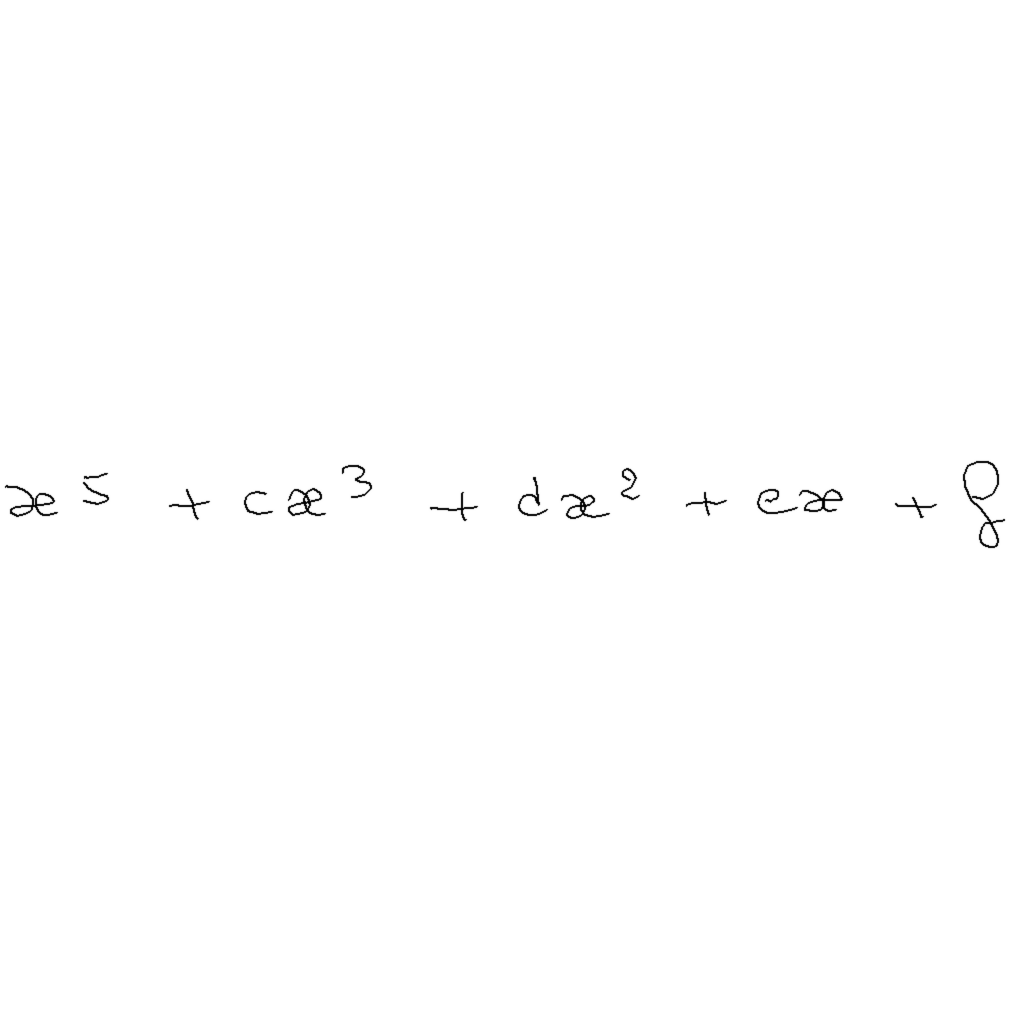 x^5 + cx^3 + dx^2 + ex + f